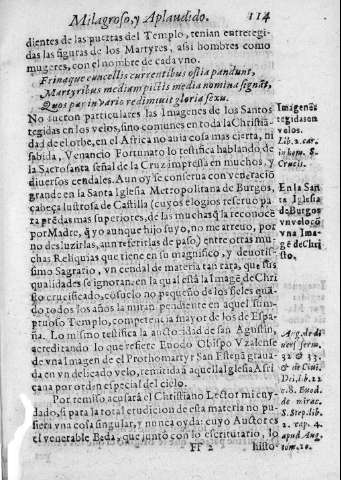 Milagroso, y Aplaudido. 114
dientes de las puertas del Templo, tenian entretegi-
das las figuras de los Martyres, assi hombres como
mugeres, con el nombre de cada vno.
currentibus ostia pandunt,
Martyribus mediam pictis media nomina signãt,
Quos par in vario redimuit gloria sexu.
No fueron particulares las Imagenes de los Santos
tegidas en los velos, sino comunes en toda la Christiã-
dad el orbe, en el Africa no auia cosa mas cierta, ni
sabida, Venancio Fortunato lo testifica hablando de
la Sacrosanta señal de la Cruz impressa en muchos, y
diuersos cendales. Aun oy se conserua con veneraciõ
grande en la Santa Iglesia Metropolitana de Burgos,
cabeça lustrosa de Castilla (cuyos elogios reseruo pa
ra prẽdas mas superiores, de las muchas q̃ la reconocẽ
por Madre, q̃ yo aunque hijo suyo, no me atreuo, por
no desluzirlas, aun referirlas de paso) entre otras mu-
chas Reliquias que tiene en su magnifico, y deuotis-
simo Sagrario, vn cendal de materia tan rara, que sus
qualidades se ignoran, en la qual està la Imagẽ de Chri
sto crucificado, cõsuelo no pequeño de los fieles quã-
do todos los años la miran pendiente en aquel sum-
ptuoso Templo, competencia mayor de los de Espa-
ña. Lo mismo testifica la auctoridad de san Agustin,
acreditando lo que refiere Euodo Obispo Vzalense
de vna Imagen de el Prothomartyr San Esteuã graua-
da en vn delicado velo, remitida à aquella Iglesia Afri
cana por orden especial del cielo.
Por remiso acusarà el Christiano Lector mi cuy-
dado, si para la total erudicion de esta materia no pu-
siera vna cosa singular, y nunca oyda: cuyo Auctor es
el venerable Beda, que juntò con lo escriturario, lo
Ff 2 histo-
Imagenẽs
tegidas en
velos.
Lib. 2. car.
in hon. S.
Crucis.
En la San
ta Iglesia
de Burgos
vn velo cõ
vna Ima-
gẽ de Chri
sto.
Aug. de di
uers. serm.
32 & 33.
& de Ciui.
Dei, lib. 22
c. 8. Euod.
de mirac.
S. Step. lib.
2. cap. 4.
apud Aug.
tom. 10.